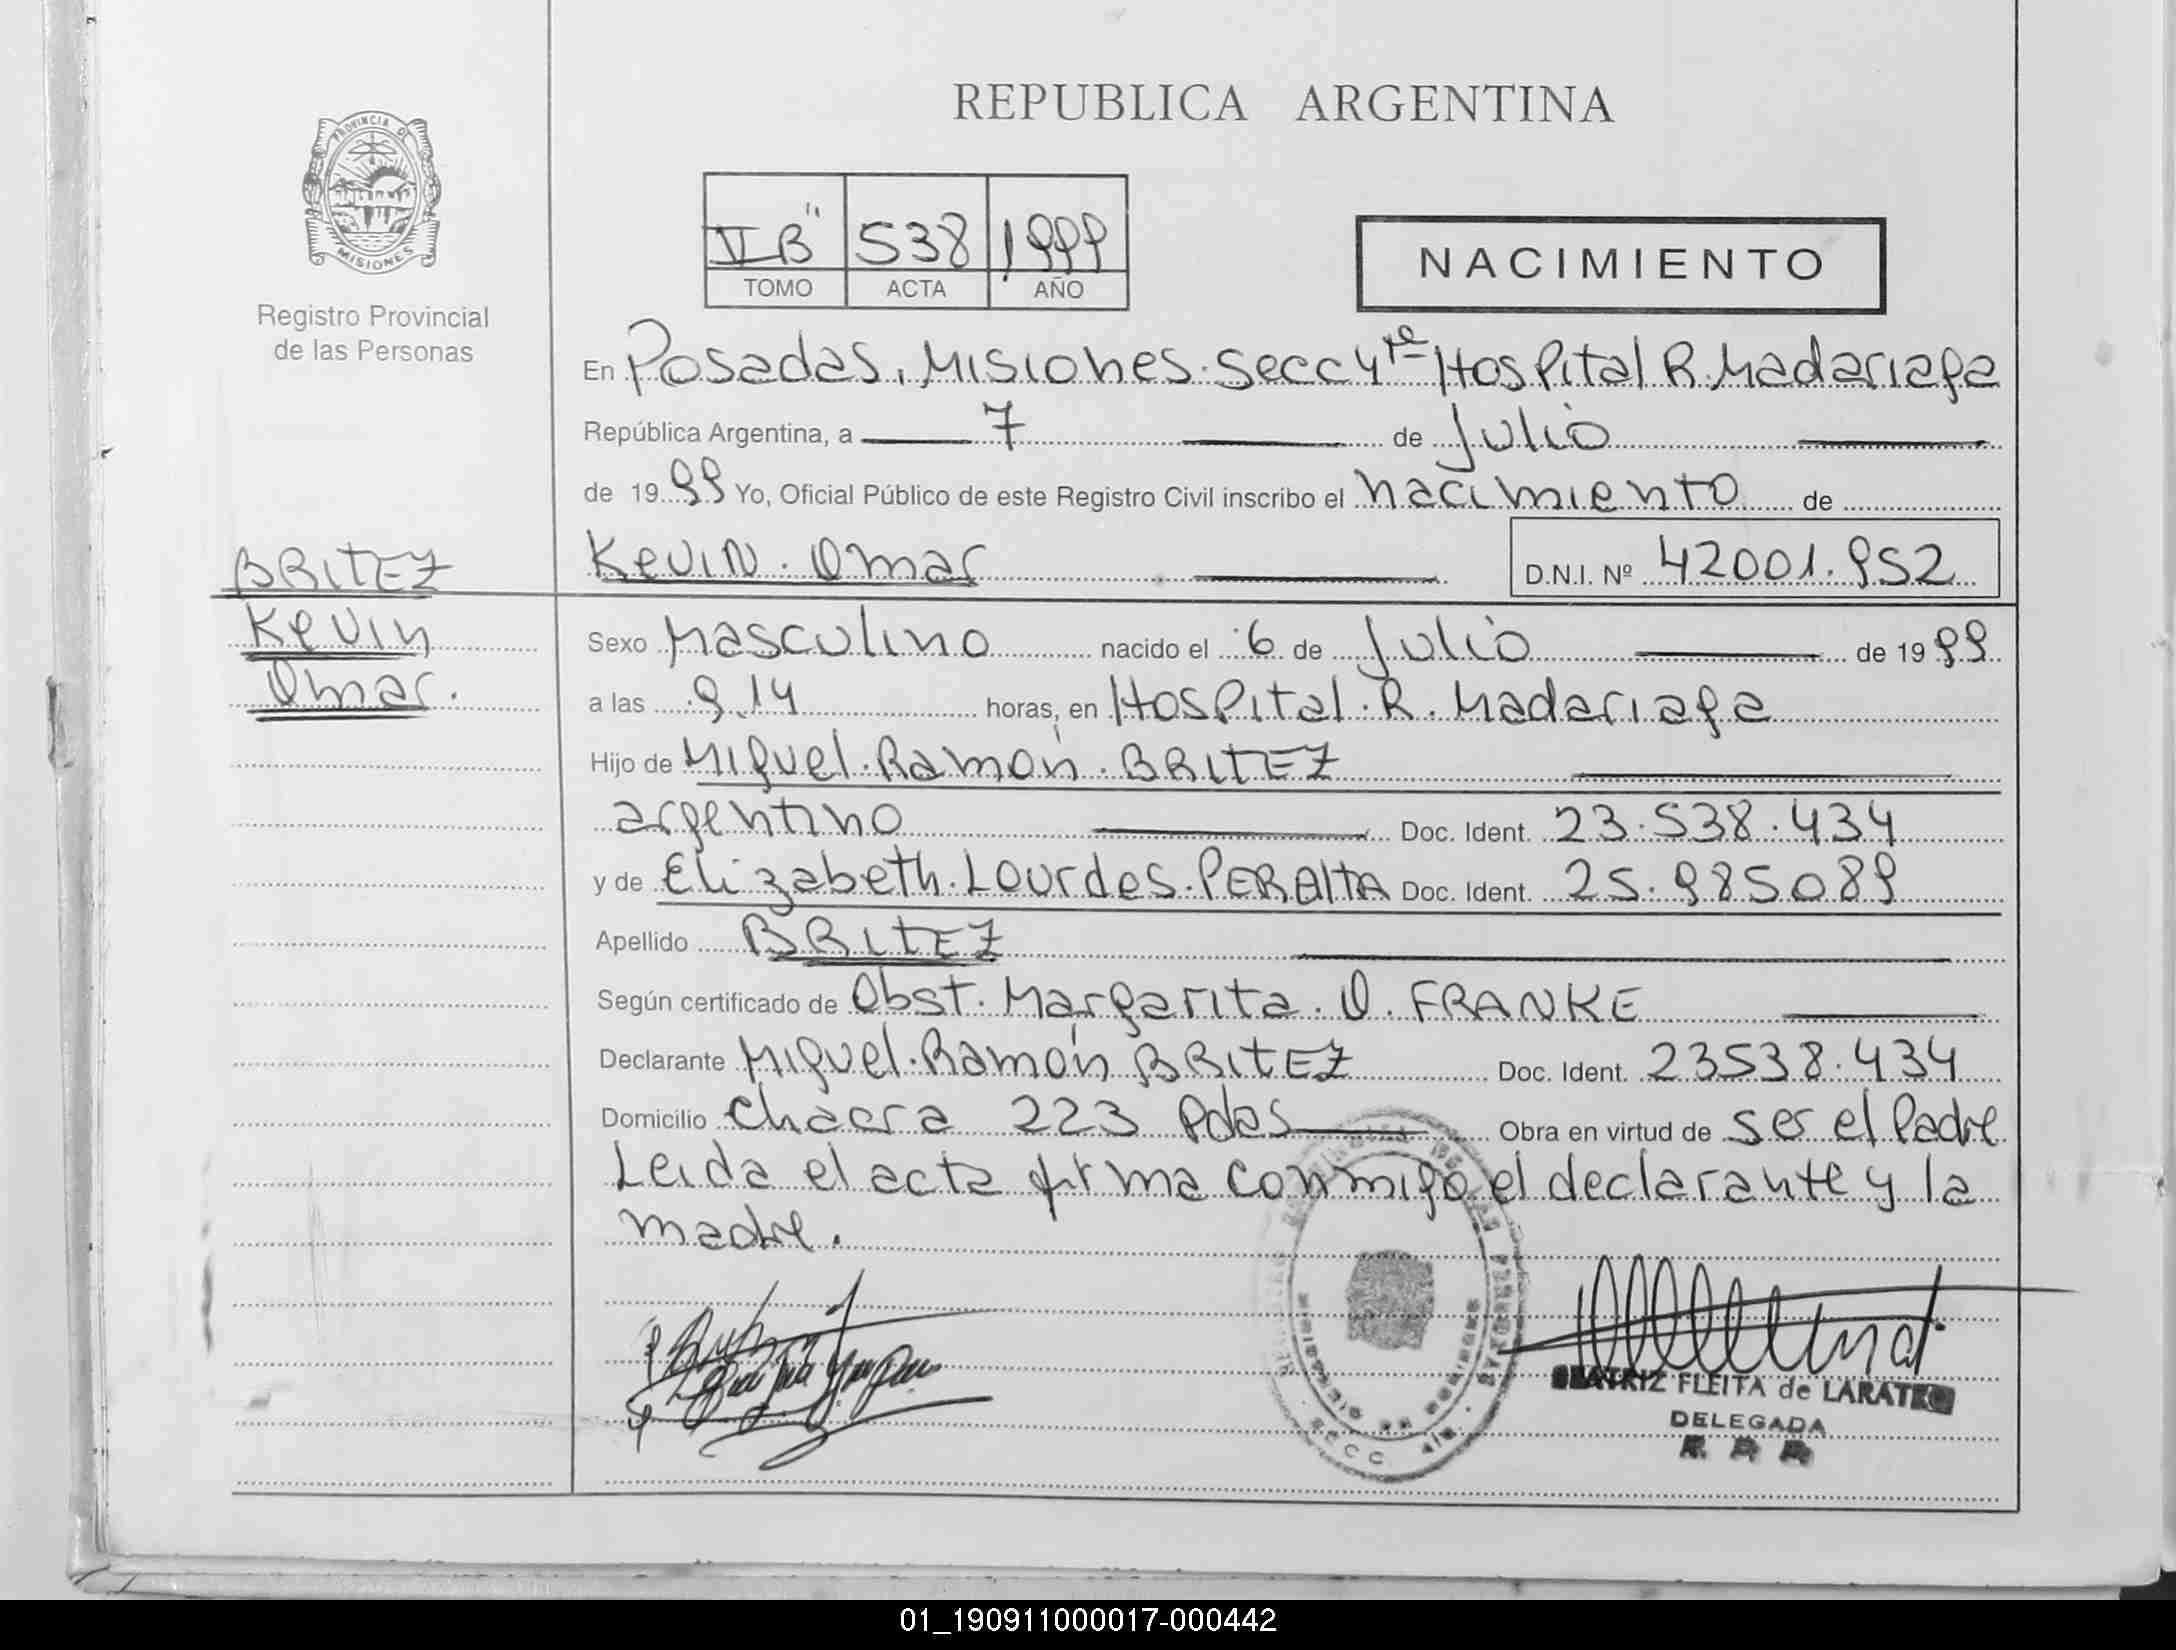 REPUBLICA ARGENTINA
PROVINCIA DE
MISIONES
Registro Provincial
de las Personas
V B" 538 1999
TOMO ACTA AÑO
NACIMIENTO
En Posadas, Misiones. Secc 4ta Hospital R. Madariaga
República Argentina, a 7 de Julio
de 1999 Yo, Oficial Público de este Registro Civil inscribo el nacimiento de
BRITEZ
Kevin. Omar D.N.I. Nº 42001.952
Kevin
Omar.
Sexo Masculino nacido el 6 de Julio de 1999
a las 9.14 horas, en Hospital. R. Madariaga
Hijo de Miguel. Ramón. BRITEZ
argentino Doc. Ident. 23.538.434
y de Elizabeth. Lourdes. PERAltA Doc. Ident. 25.985089
Apellido BRITEZ
Según certificado de Obst. Margarita. O. FRANKE
Declarante Miguel. Ramón BRITEZ Doc. Ident. 23538.434
Domicilio chacra 223 Pdas Obra en virtud de ser el Padre
Leida el acta firma conmigo el declarante y la
madre.
BEATRIZ FLEITA de LARATRO
DELEGADA
SECC
01_190911000017-000442